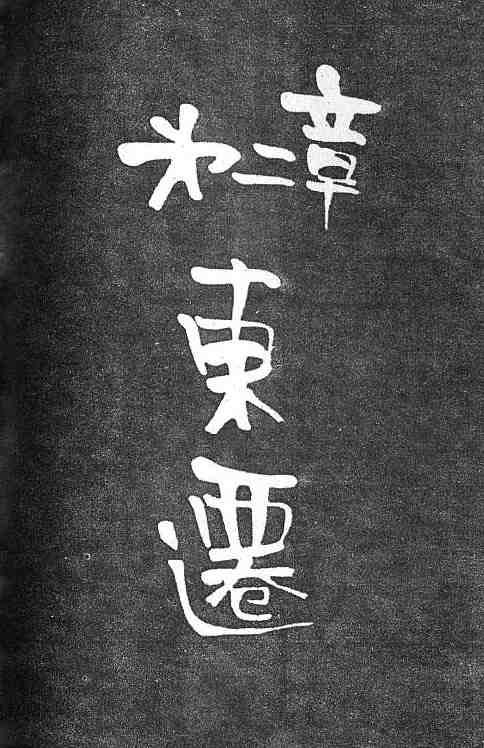 第二章
東遷